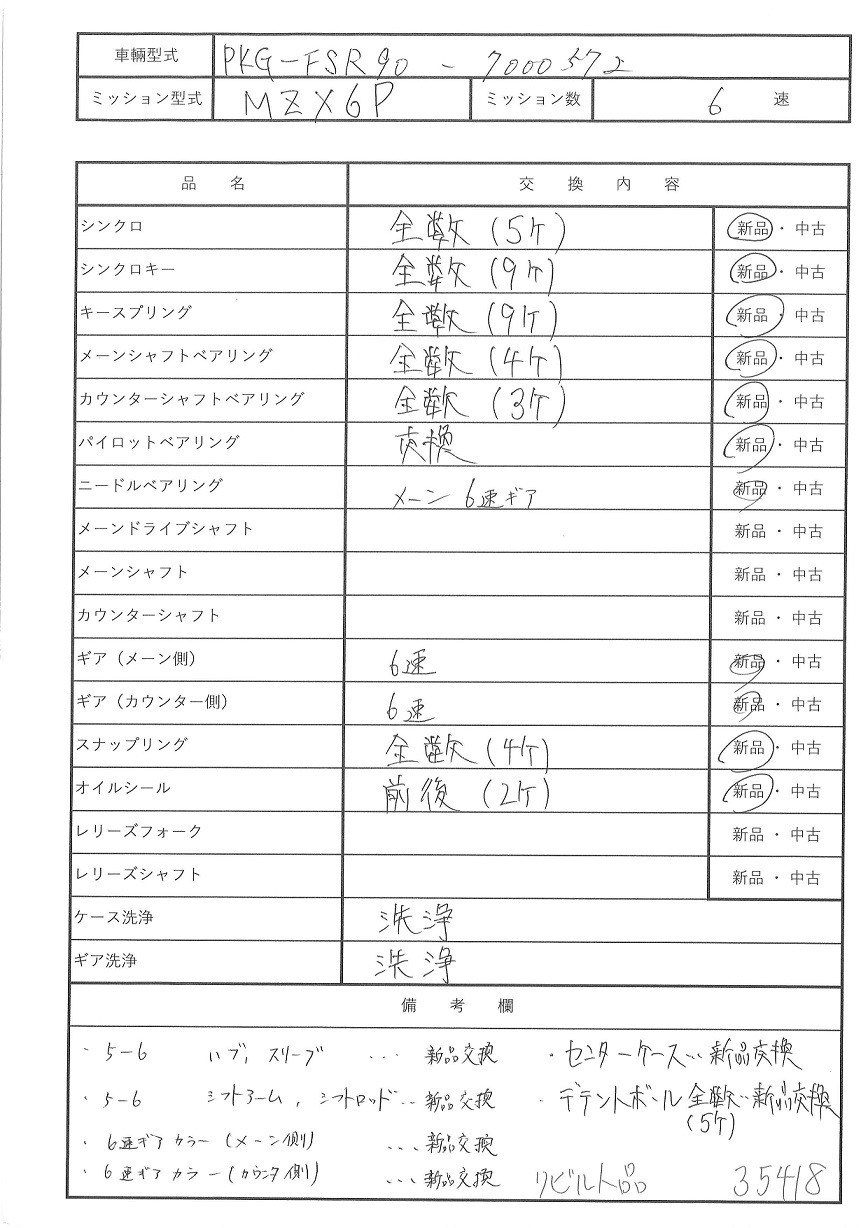 車輌型式 PKG-FSR90 - 7000572
ミッション型式 MZX6P ミッション数 6 速
品 名 交 換 内 容
シンクロ 全数 (5ケ) 新品 ・ 中古
シンクロキー 全数 (9ケ) 新品 ・ 中古
キースプリング 全数 (9ケ) 新品 ・ 中古
メーンシャフトベアリング 全数 (4ケ) 新品 ・ 中古
カウンターシャフトベアリング 全数 (3ケ) 新品 ・ 中古
パイロットベアリング 交換 新品 ・ 中古
ニードルベアリング メーン 6速ギア 新品 ・ 中古
メーンドライブシャフト 新品 ・ 中古
メーンシャフト 新品 ・ 中古
カウンターシャフト 新品 ・ 中古
ギア（メーン側） 6速 新品 ・ 中古
ギア（カウンター側） 6速 新品 ・ 中古
スナップリング 全数 (4ケ) 新品 ・ 中古
オイルシール 前後 (2ケ) 新品 ・ 中古
レリーズフォーク 新品 ・ 中古
レリーズシャフト 新品 ・ 中古
ケース洗浄 洗浄
ギア洗浄 洗浄
備 考 欄
・ 5-6 ハブ, スリーブ ・・・ 新品交換 ・ センターケース・・・新品交換
・ 5-6 シフトアーム, シフトロッド・・ 新品交換 ・ デテントボール 全数・・新品交換
(5ケ)
・ 6速ギア カラー (メーン側) ・・・ 新品交換
・ 6速ギア カラー (カウンタ側) ・・・ 新品交換 リビルト品 35418